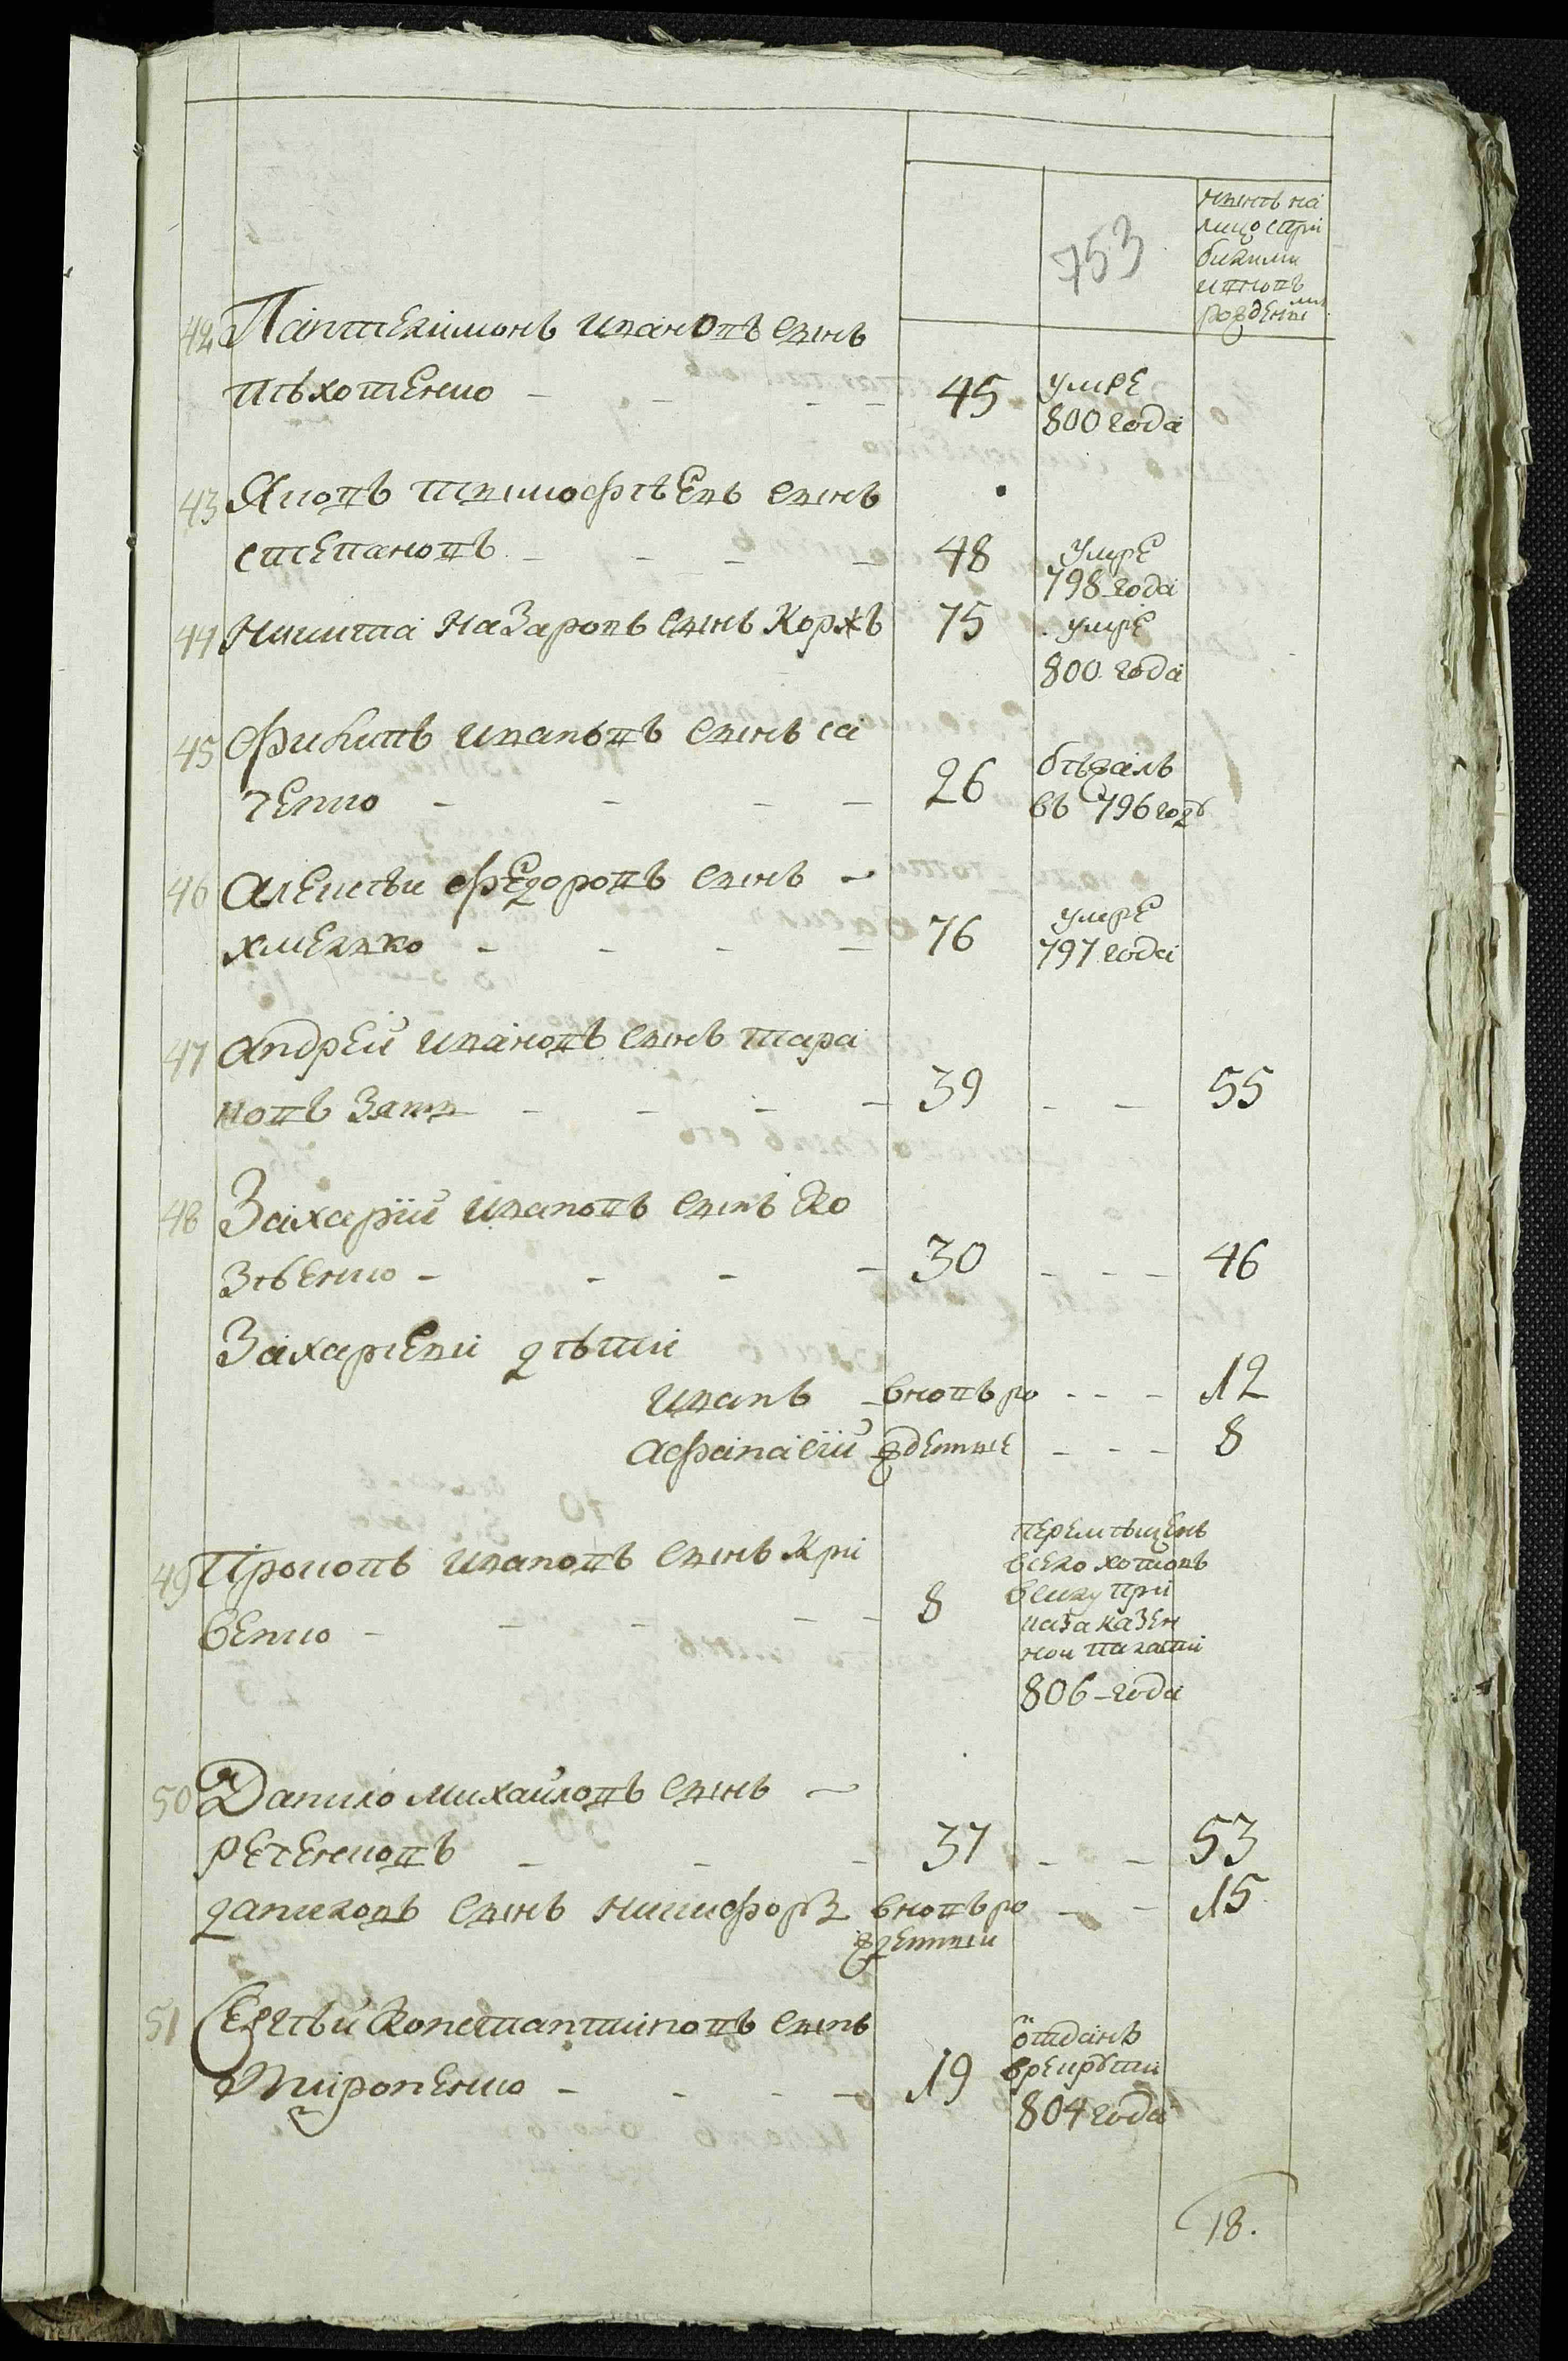 753
ныне на
лицо с при
былими
и новъ
рожденими
42 Пантелимонъ Ивановъ сынъ
Пѣхотенко - - - - 45 умре
800 года
43 Яковъ Тымофѣевъ сынъ
Степановъ - - - - 48 умре
798 года
44 Никита Назаровъ сынъ Коржъ 75 умре
800 года
45 Филипъ Ивановъ сынъ Са
ченко - - - - 26 бѣжалъ
въ 796 году
46 Алексѣи Федоровъ сынъ -
Хмелыко - - - - 76 умре
797 года
47 Андрей Ивановъ сынъ Тара
новъ Зяты - - - - 39 - - 55
48 Захарїй Ивановъ сынъ Ко
зѣенко - - - - 30 - - - 46
Захариевы дѣти
Иванъ - вновъ ро - - - 12
Афанасїй жденные - - - 8
49 Прокопъ Ивановъ сынъ Кри
венко - - - - 8
перемѣщенъ
в село хотовъ
в силу при
каза казен
нои палати
806 - года
50 Данило Михайловъ сынъ -
Реченковъ - - - 37 - - 53
Даниловъ сынъ Никифоръ вновъ ро - - 15
жденныи
51 Сергѣй Константиновъ сынъ
Мироненко - - - - 19
отданъ
в рекруты
804 года
18.